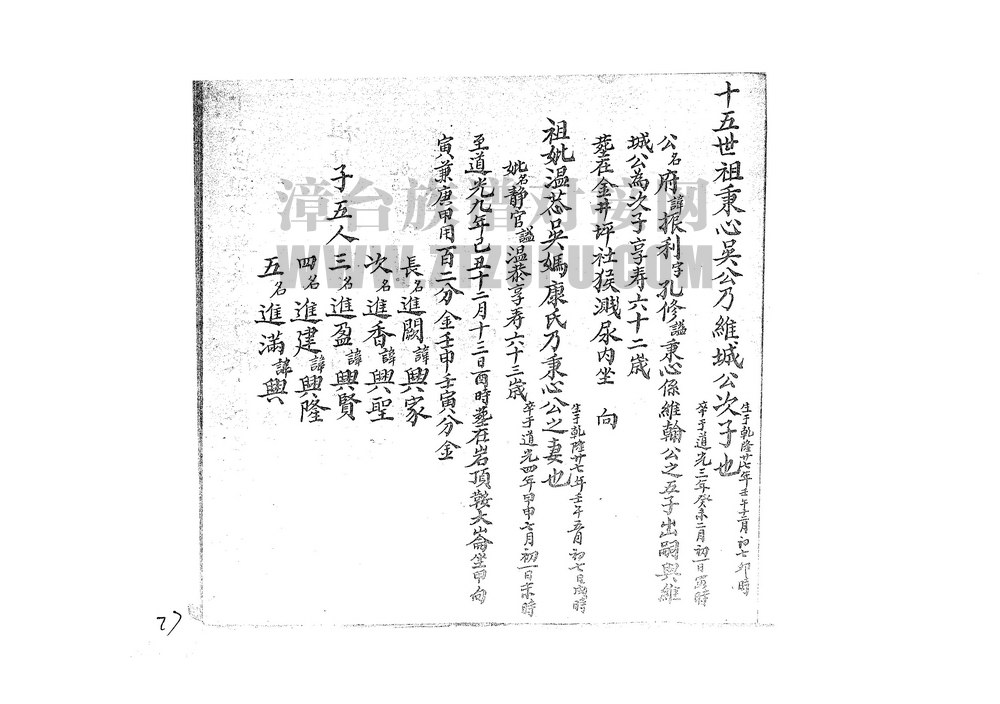 十五世祖秉心吳公乃維城公次子也
生于乾隆廿七年壬午十二月初七卯時
卒于道光三年癸未二月初一日寅時
公名府諱振利字孔修謚秉心係維翰公之五子出嗣與維
城公為次子享寿六十二歲
塟在金井坪社猴溅尿内坐 向
祖妣温恭吳媽康氏乃秉心公之妻也
生于乾隆廿七年壬午五月初七日戌時
卒于道光四年甲申七月初一日未時
妣名静官謚温恭享寿六十三歲
至道光九年己丑十二月十三日酉時塟在岩頂鞍大崙坐甲向
寅兼庚甲用百二分金壬申壬寅分金
子五人
長名進闕諱興家
次名進香諱興聖
三名進盈諱興賢
四名進建諱興隆
五名進滿諱興
漳台族谱对接网
WWW.ZTZUPU.COM
27